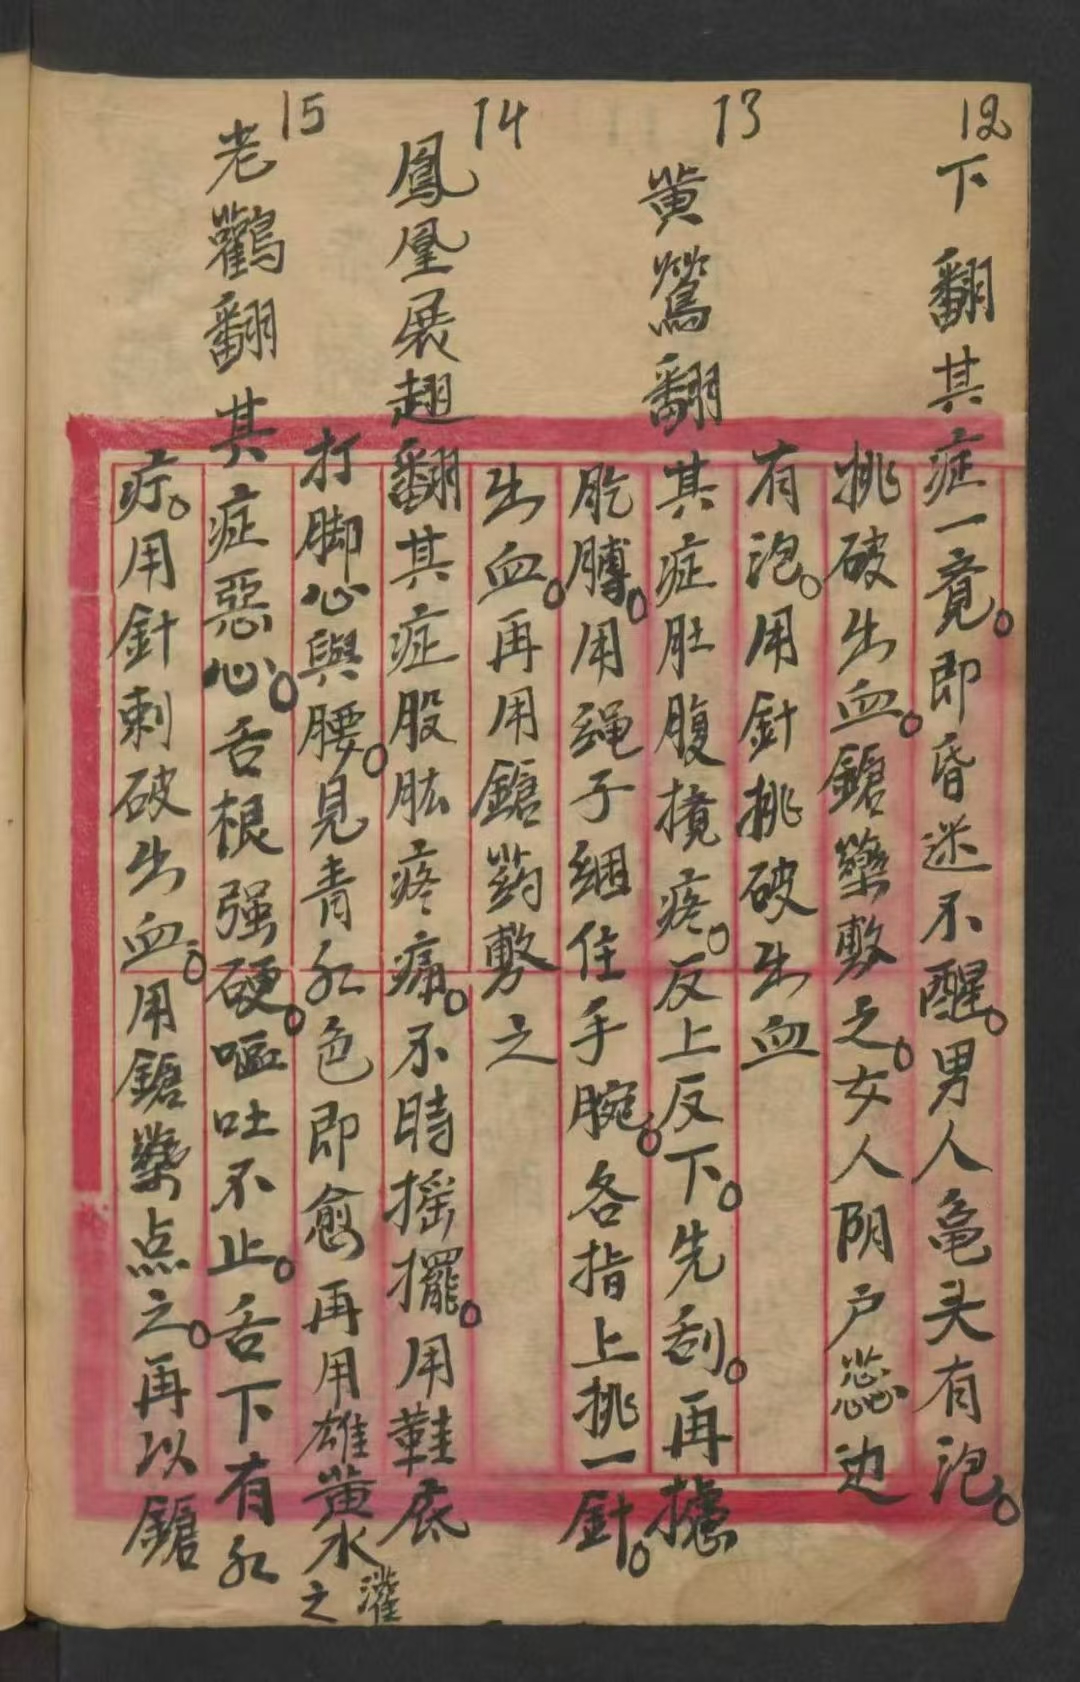 12
下翻其症一竟。即昏迷不醒。男人亀头有泡。
挑破出血。鎗藥敷之。女人阴户蕊边
有泡。用針挑破出血
13
黄鶯翻其症肚腹攪疼。反上反下。先刮。再攄
肐膊。用绳子綑住手腕。各指上挑一針。
出血。再用鎗葯敷之
14
鳳凰展趐翻其症股肱疼痛。不時摇擺。用鞋底
打脚心與腰。見青红色即愈再用雄黄水灌之
15
老鸛翻其症惡心。舌根强硬。嘔吐不止。舌下有红
疔。用針刺破出血。用鎗藥点之。再以鎗